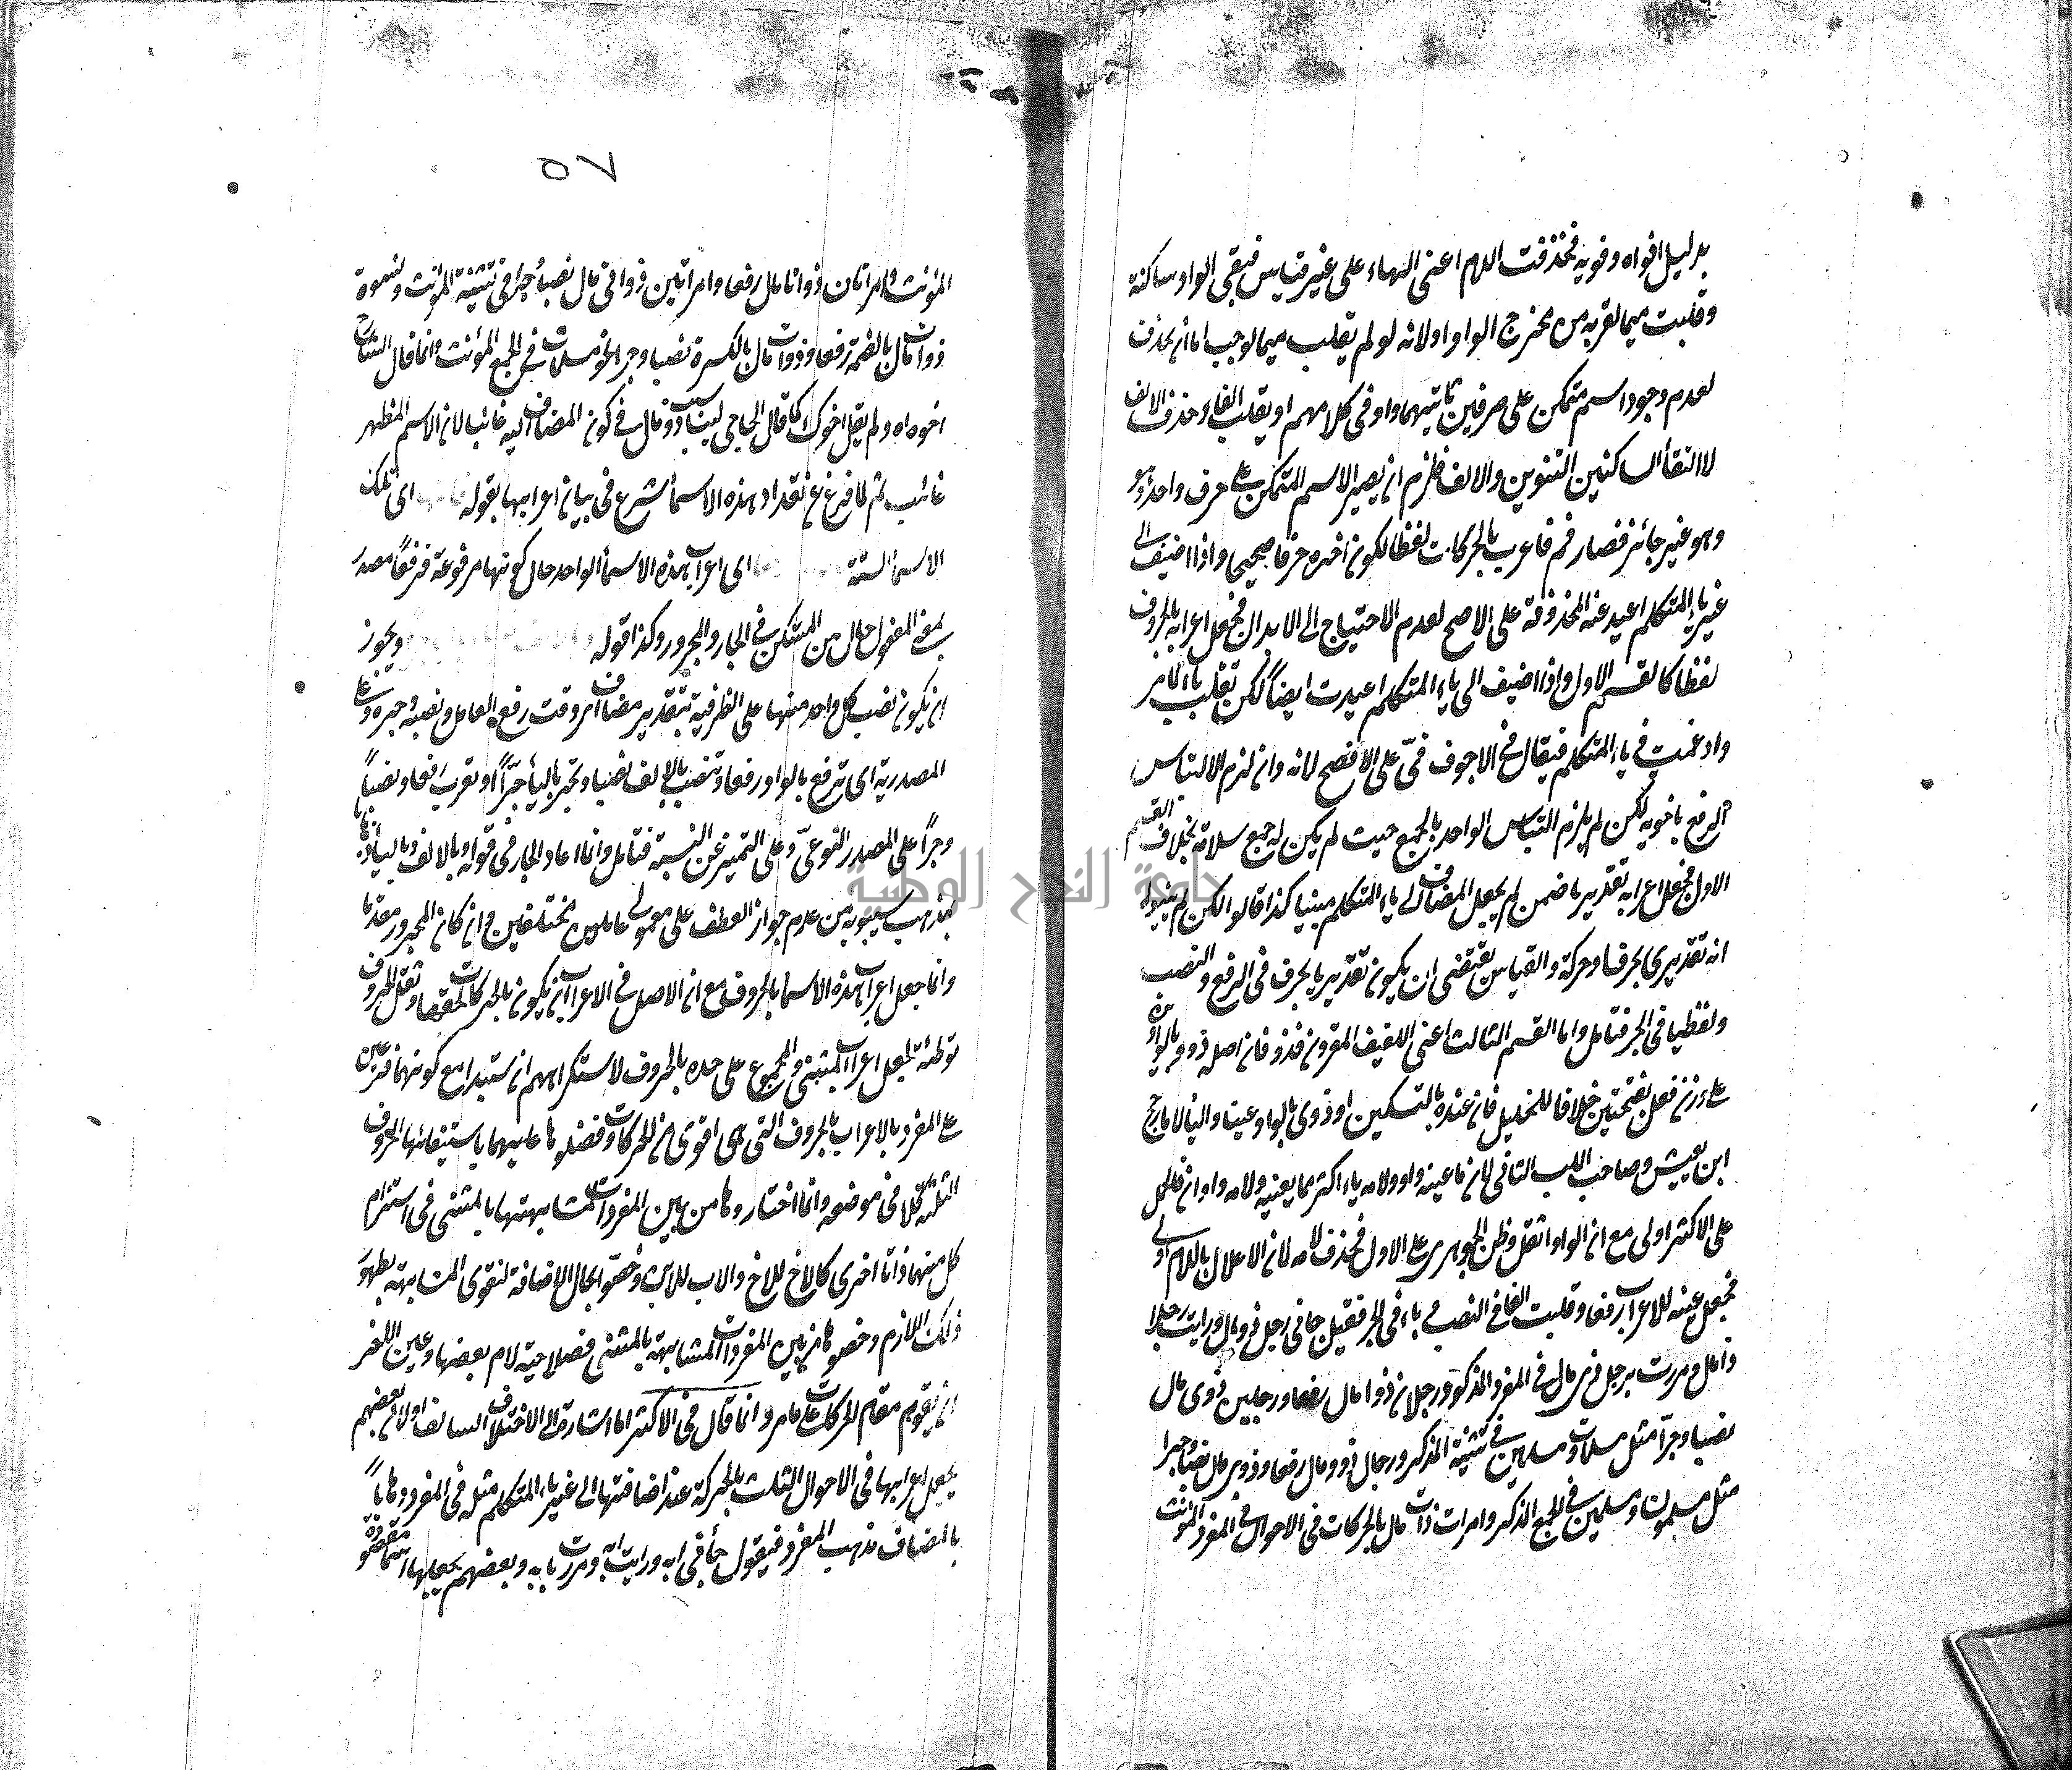 بدليل افواه وفويه فحذفت اللام اعنى الهاء على غير قياس فبقى الواو ساكنة
وقلبت ميما لقربه من مخرج الواو ولانه لو لم يقلب ميما لوجب اما ان يحذف
لعدم وجود اسم متمكن على حرفين ثانيهما واو فى كلامهم او يقلب الفا وحذف الالف
لالتقأ الساكنين التنوين والالف فلزم ان يصير الاسم المتمكن على حرف واحد
وهو غير جائز فصار فم فاعرب بالحركات لفظا لكون اخره حرفا صحيحا واذا اضيف الى
غير ياء المتكلم اعيد عنه المحذوفة على الاصح لعدم الاحتياج الى الابدال فجعل اعرابه بالحروف
لفظا كالقسم الاول واذا اضيف الى ياء المتكلم اعيدت ايضاً لكن تقلب ياء
وادغمت فى ياء المتكلم فيقال فى الاجوف فىّ على الافصح لانه وان لزم الالتباس
الرفع باخويه لكن لم يلزم التباس الواحد بالجمع حيث لم يكن له جمع سلامة بخلاف القسم
الاول فجعل اعرابه تقديريا ضمن لم يجعل المضاف الى ياء المتكلم مبنيا كذا قالوا لكن لم
انه تقديرى بحرف او حركة والقياس يقتضى ان يكون تقديريا بحرف فى الرفع والنصب
ولفظيا فى الجر فتامل واما القسم الثالث اعنى اللفيف المقرون فذو فان اصله ذوو بالواوين
على وزن فعل بفتحتين خلافا للخليل فان عنده بالتسكين او ذوى بالواو عينا والياء لاما رجح
ابن يعيش وصاحب اللب الثانى لان ما عينه واو ولامه ياء اكثر مما عينه ولامه واو فالحمل
على الاكثر اولى مع ان الواو اثقل وظن الجوهرى على الاول فحذف لامه لان الاعلال باللام اولى
فجعل عينه للاعراب رفعا وقلبت الفا فى النصب ياء فى الجر فقيل جانى رجل ذو مال ورايت رجلا
ذا مال ومررت برجل ذى مال فى المفرد المذكور ورجلان ذوا مال رفعا ورجلين ذوى مال
نصبا وجرّا مثل مسلمان ومسلمين فى تثنية المذكر ورجال ذوو مال رفعا وذوى مال نصبا وجرا
مثل مسلمون ومسلمين فى الجمع المذكر وامرات ذات مال بالحركات فى الاحوال فى المفرد المونث
٥٧
المؤنث وامراتان ذواتا مال رفعا وامراتين ذواتى مال نصبا وجرا فى تثنية المؤنث ونسوة
ذوات مال بالضمة رفعا وذوات مال بالكسرة نصبا وجرا نحو مسلمات فى الجمع المؤنث وانما قال الشارح
اخوه اه ولم يقل اخوك كما قال ابن الحاجب ليناسب ذو مال فى كون المضاف اليه غائبا لان الاسم المظهر
غائب ثم لما فرغ عن تعداد هذه الاسمأ شرع فى بيان اعرابها بقوله اى تلك
الاسمأ الستة اى اعراب هذه الاسمأ الواحد حال كونها مرفوعة فرفعًا مصدر
بمعنى المفعول حال من المستكن فى الجار والمجرور وكذا قوله ويجوز
ان يكون نصب كل واحد منها على الظرفية بتقدير مضاف اى وقت رفع العامل ونصبه وجره وعلى
المصدرية اى ترفع بالواو رفعا وتنصب بالالف نصبا وتجر باليأ جرًّا او تعرب رفعا ونصباً
وجراً على المصدر النوعىّ وعلى التميز عن النسبة فتامل وانما اعاد الجار فى قوله وبالالف وباليأ
لمذهب سيبويه من عدم جواز العطف على معمولى عاملين مختلفين وان كان المجرور مقدما
وانما جعل اعراب هذه الاسما بالحروف مع ان الاصل فى الاعراب ان يكون بالحركات لخفتها وثقل الحروف
توطئة لجعل اعراب المثنى والمجموع على حده بالحروف لاستكراههم ان يستبدا مع كونهما فرعين
على المفرد بالاعراب بالحروف التى هى اقوى من الحركات وفضلوها عليهما باستيفائها الحروف
الثلثة كلا فى موضعه وانما اختاروها من بين المفردات لمشابهتها بالمثنى فى استلزام
كل منهما ذاتا اخرى كالاخ للاخ والاب للابن وخصوا بحال الاضافة لتقوى المشابهة بظهور
ذلك اللازم وخصوها من بين المفردات المشابهة بالمثنى فصلاحية لام بعضها وعين الاخر
ان يقوم مقام الحركات على مامر وانما قال فى الاكثر اما اشارة الى الاختلاف السابق او لان بعضهم
يجعل اعرابها فى الاحوال الثلث بالحركة عند اضافتها الى غير ياء المتكلم مثله فى المفرد
بالمضاف مذهب المفرد فيقول جأنى ابه ورايت ابه ومررت بابه وبعضهم يجعلها اسما مقصورة
جامعة النجاح الوطنية